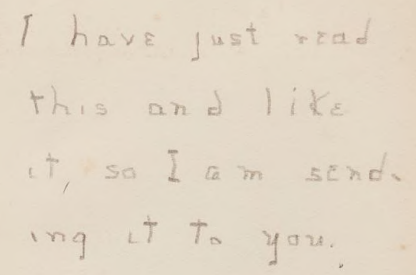 I have just read
this and like
it, so I am send-
ing it to you.